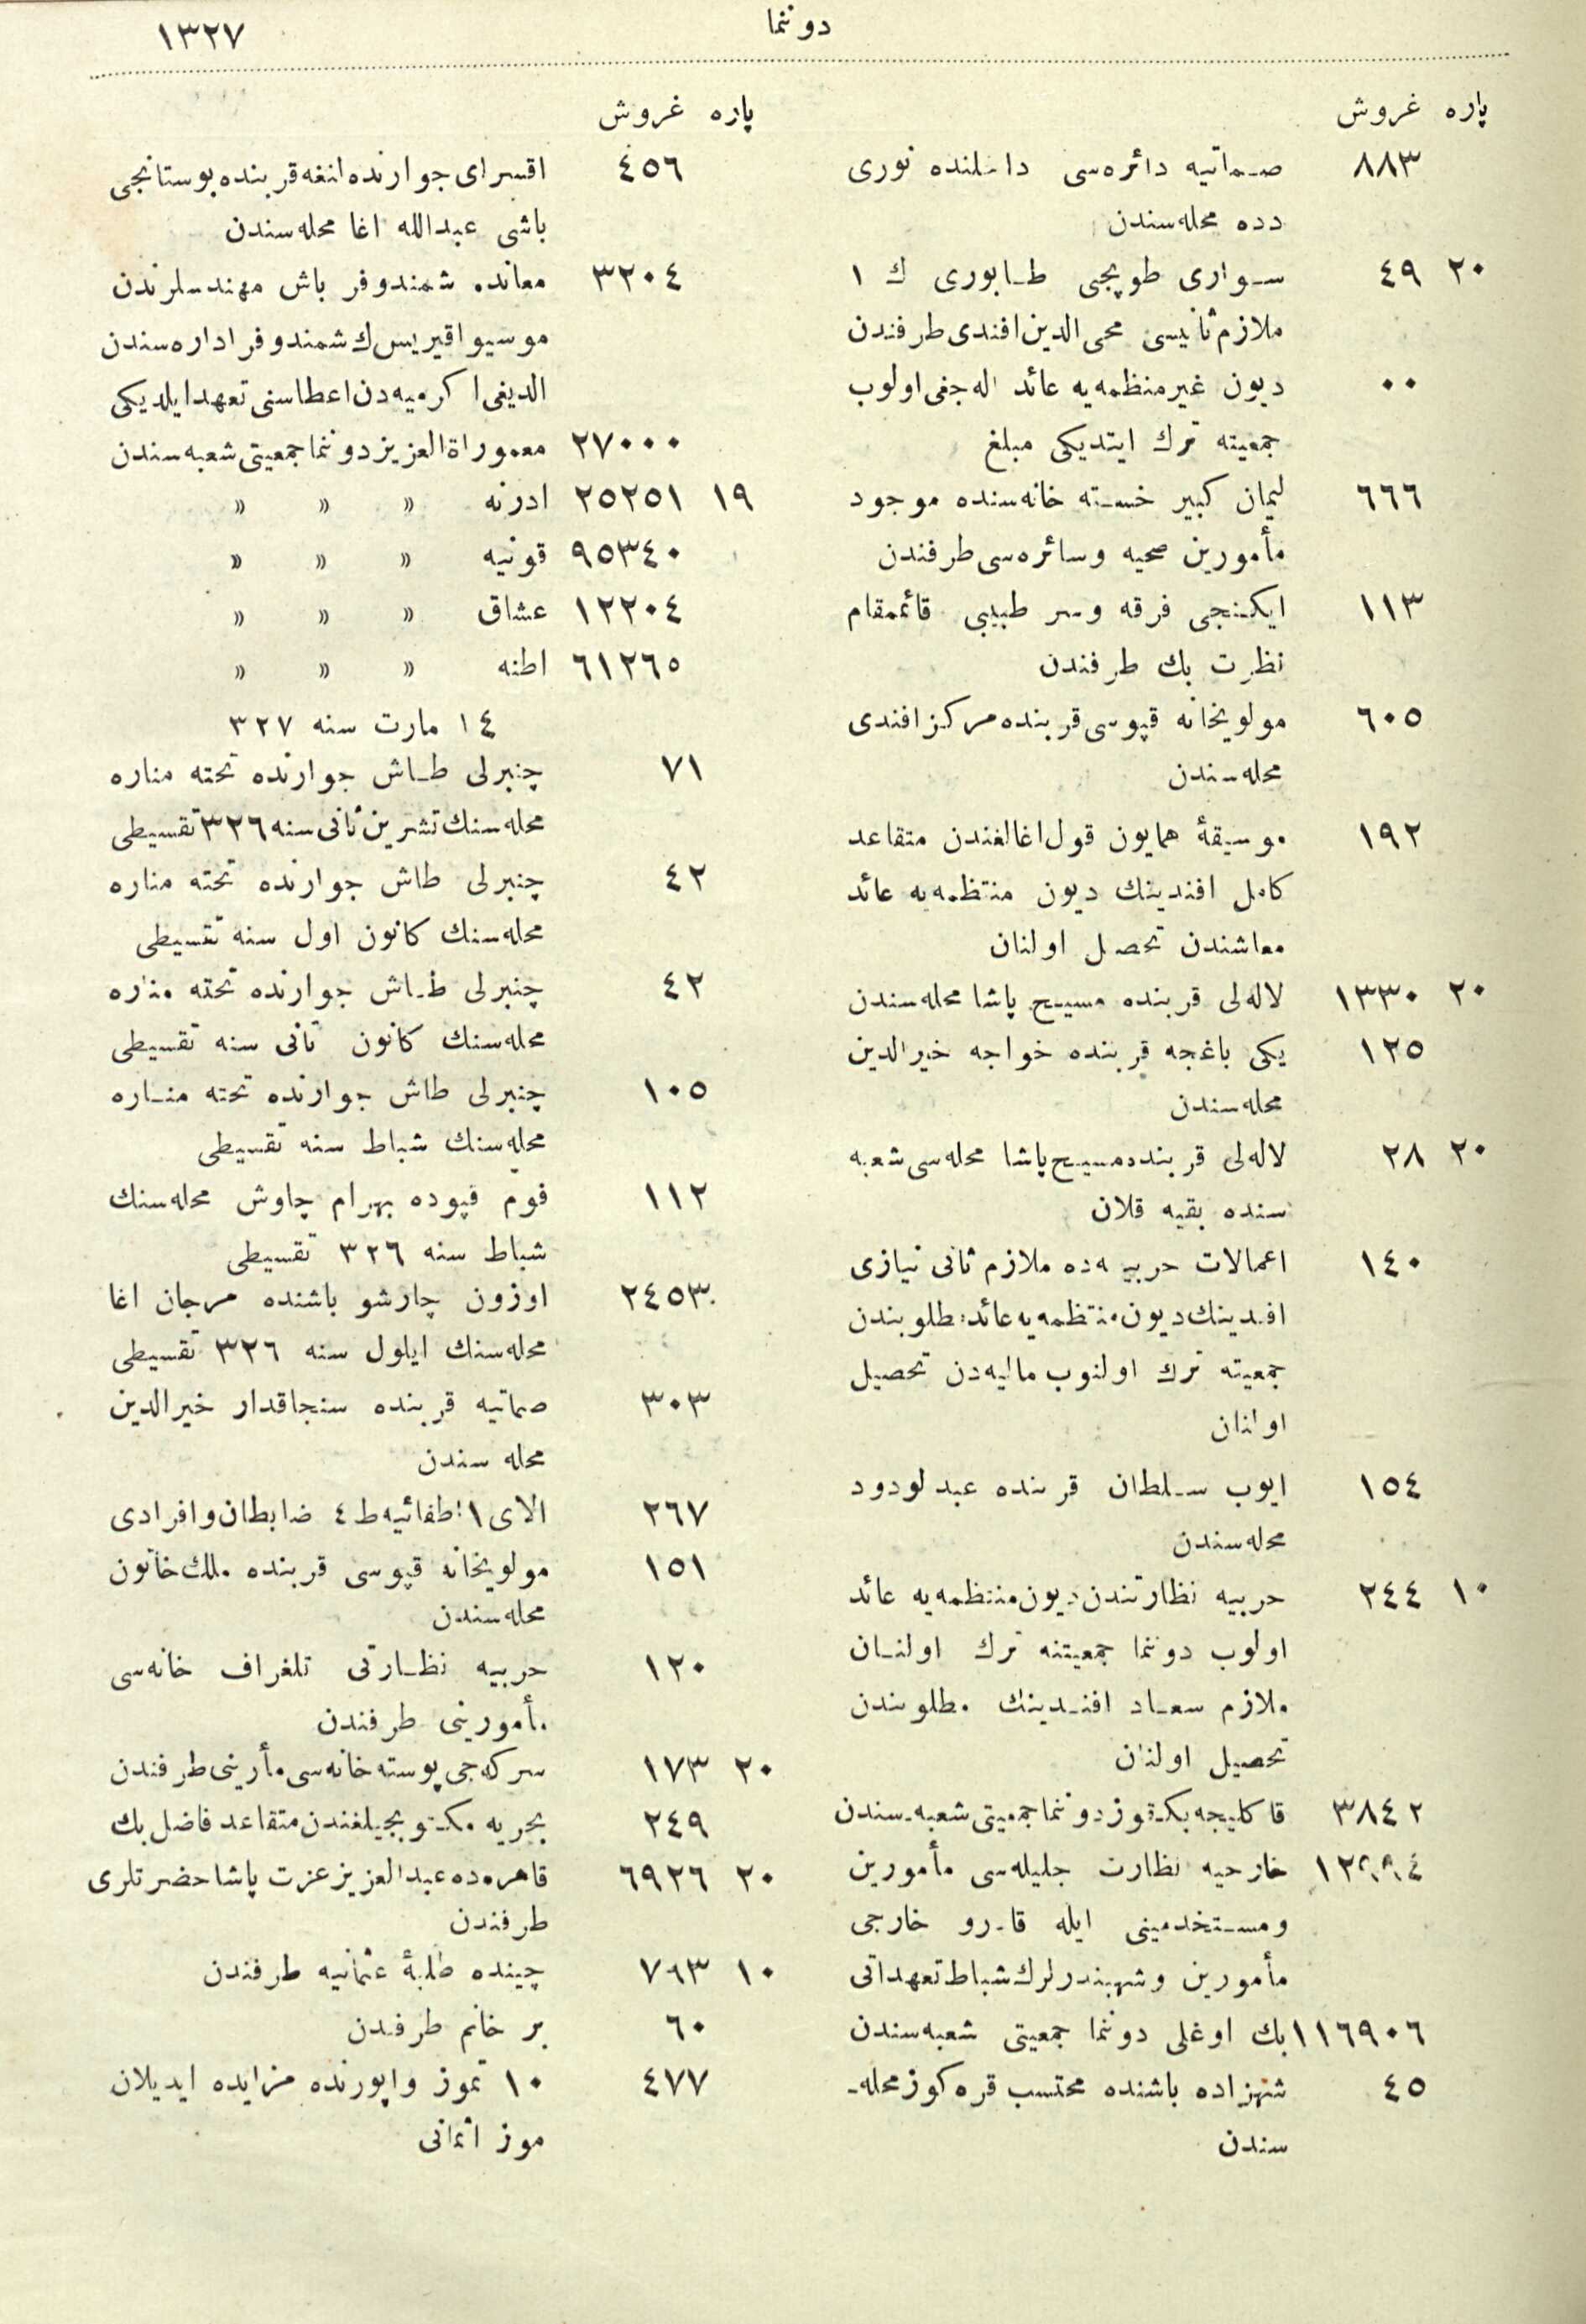 دوننما
١٣٢٧
پاره غروش
٨٨٣ صماتيه دائره‌سى داخلنده نورى
دده محله‌سندن
٢٠ ٤٩ سوارى طوپجى طابورى ك ١
ملازم ثانيسى محى الدين افندى طرفندن
٠٠ ديون غير منظمه‌يه عائد اله‌جغى اولوب
جمعيته ترك ايتديكى مبلغ
٦٦٦ ليمان كبير خسته خانه‌سنده موجود
مأمورين صحيه وسائره‌سى طرفندن
١١٣ ايكنجى فرقه وسر طبيبى قائممقام
نظرت بك طرفندن
٦٠٥ مولويخانه قپوسى قربنده مركز افندى
محله‌سندن
١٩٢ موسيقهٔ همايون قول اغالغندن متقاعد
كامل افندينك ديون منتظمه‌يه عائد
معاشندن تحصل اولنان
٢٠ ١٣٣٠ لاله‌لى قربنده مسيح پاشا محله‌سندن
١٢٥ يكى باغچه قربنده خواجه خيرالدين
محله‌سندن
٢٠ ٢٨ لاله‌لى قربنده مسيح پاشا محله‌سى شعبه
سنده بقيه قلان
١٤٠ اعمالات حربيه‌ده ملازم ثانى نيازى
افندينك ديون منتظمه‌يه عائد مطلوبندن
جمعيته ترك اولنوب ماليه‌دن تحصيل
اولنان
١٥٤ ايوب سلطان قربنده عبدلودود
محله‌سندن
١٠ ٢٤٤ حربيه نظارتندن ديون منتظمه‌يه عائد
اولوب دوننما جمعيتنه ترك اولنان
ملازم سعاد افندينك مطلوبندن
تحصيل اولنان
٣٨٤٢ قاكليجه بكتوز دوننما جمعيتى شعبه‌سندن
خارجيه نظارت جليله‌سى مأمورين
ومستخدمينى ايله قادرو خارجى
مأمورين وشهبندرلرك شباط تعهداتى
١١٦٩٠٦ بك اوغلى دوننما جمعيتى شعبه‌سندن
٤٥ شهزاده باشنده محتسب قره كوز محله-
سندن
پاره غروش
٤٥٦ اقسراى جوارنده انغه قربنده بوستانجى
باشى عبدالله اغا محله‌سندن
٣٢٠٤ معانده شمندوفر باش مهندسلرندن
موسيو اقيريس‌ك شمندوفر اداره‌سندن
الديغى اكرميه‌دن اعطاسنى تعهد ايلديكى
٢٧٠٠٠ معموراة العزيز دوننما جمعيتى شعبه‌سندن
١٩ ٢٥٢٥١ ادرنه » » »
٩٥٣٤٠ قونيه » » »
١٢٢٠٤ عشاق » » »
٦١٢٦٥ اطنه » » »
١٤ مارت سنه ٣٢٧
٧١ چنبرلى طاش جوارنده تخته مناره
محله‌سنك تشرين ثانى سنه ٣٢٦ تقسيطى
٤٢ چنبرلى طاش جوارنده تخته مناره
محله‌سنك كانون اول سنه تقسيطى
٤٢ چنبرلى طاش جوارنده تخته مناره
محله‌سنك كانون ثانى سنه تقسيطى
١٠٥ چنبرلى طاش جوارنده تخته مناره
محله‌سنك شباط سنه تقسيطى
١١٢ قوم قپوده بهرام چاوش محله‌سنك
شباط سنه ٣٢٦ تقسيطى
٢٤٥٣ اوزون چارشو باشنده مرجان اغا
محله‌سنك ايلول سنه ٣٢٦ تقسيطى
٣٠٣ صماتيه قربنده سنجاقدار خيرالدين
محله سندن
٢٦٧ الاى ١ اطفائيه ط ٤ ضابطان وافرادى
١٥١ مولويخانه قپوسى قربنده ملك خاتون
محله‌سندن
١٢٠ حربيه نظارتى تلغراف خانه‌سى
مأمورينى طرفندن
٢٠ ١٧٣ سركه‌جى پوسته خانه‌سى مأرينى طرفندن
٢٤٩ بحريه مكتوبجيلغندن متقاعد فاضل بك
٢٠ ٦٩٢٦ قاهره‌ده عبدالعزيز عزت پاشا حضرتلرى
طرفندن
١٠ ٧٦٣ چينده طلبهٔ عثمانيه طرفندن
٦٠ بر خانم طرفندن
٤٧٧ ١٠ تموز واپورنده مزايده ايديلان
موز اثمانى